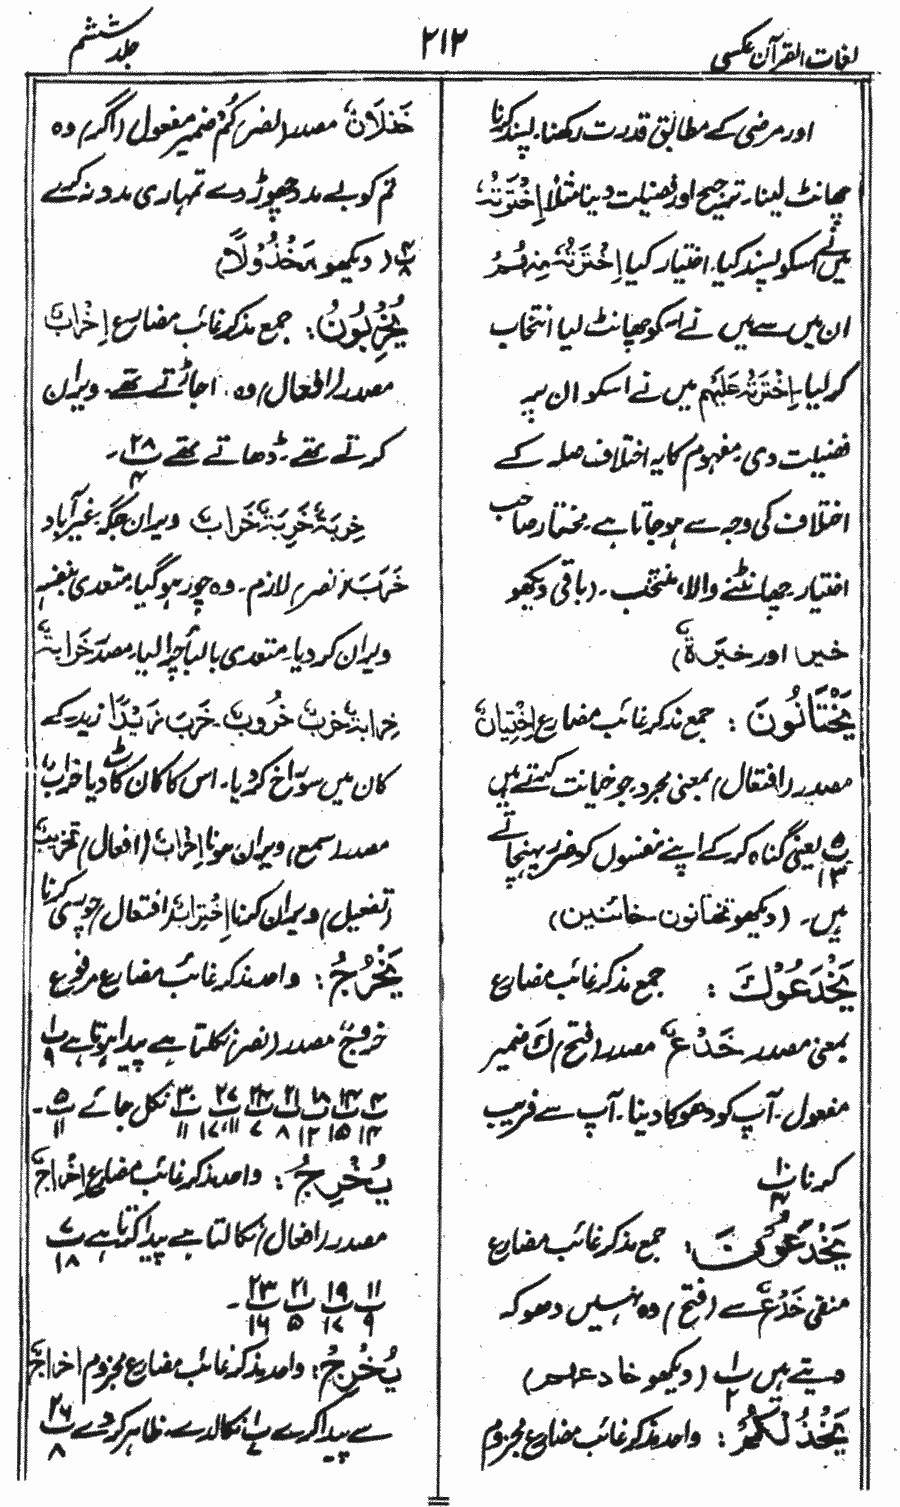 لغات القرآن عکسی
۲۱۲
جلد ششم
اور مرضی کے مطابق قدرت رکھنا۔ پسند کرنا
چھانٹ لینا۔ ترجیح اور فضیلت دینا مثلًا اِخْتَرْتُہٗ
میں نے اسکو پسند کیا۔ اختیار کیا اِخْتَرْتُہٗ مِنْہُمْ
ان میں سے میں نے اسکو چھانٹ لیا انتخاب
کر لیا۔ اِخْتَرْتُہٗ عَلَیْہِم میں نے اسکو ان پر
فضیلت دی۔ مفہوم کا یہ اختلاف صلہ کے
اختلاف کی وجہ سے ہو جاتا ہے۔ مختار صاحب
اختیار۔ چھانٹنے والا، منتخب۔ (باقی دیکھو
خیرا اور خیَرۃٌ)
یَخْتَانُونَ : جمع مذکر غائب مضارع اِخْتِیَانٌ
مصدر (افتعال) بمعنی مجرد۔ جو خیانت کرتے ہیں
یعنی گناہ کر کے اپنے نفسوں کو ضرر پہنچاتے
پ ۵ / ۱۳
ہیں۔ (دیکھو تختانون۔ خائنین)
یَخْدَعُوْكَ : جمع مذکر غائب مضارع
بمعنی مصدر خَدْعٌ مصدر (فتح) كَ ضمیر
مفعول۔ آپ کو دھوکا دینا۔ آپ سے فریب
کرنا پ ۱۰ / ۴
یَخْدَعُوْنَ : جمع مذکر غائب مضارع
منفی خَدْعٌ سے (فتح) وہ نہیں دھوکہ
دیتے ہیں پ ۱ / ۲ (دیکھو خادعھم)
یَخْذُلْكُمْ : واحد مذکر غائب مضارع مجزوم
خَذلَانٌ مصدر (نصر) كُمْ ضمیر مفعول (اگر) وہ
تم کو بے مدد چھوڑ دے تمہاری مدد نہ کرے
پ ۴ / ۸ (دیکھو مَخْذُوْلًا)
یُخْرِبُوْنَ : جمع مذکر غائب مضارع اِخْرَابٌ
مصدر (افعال) وہ اجاڑتے تھے۔ ویران
کرتے تھے۔ ڈھاتے تھے پ ۲۸ / ۴ ۔
خِرَبَۃٌ خَرِبَۃٌ خَرَابٌ ویران جگہ۔ غیر آباد
خَرَبَ (نصر) لازم۔ وہ چور ہو گیا۔ متعدی بنفسہٖ
ویران کر دیا۔ متعدی بالباء چرا لیا۔ مصدر خَرَابَۃٌ
خِرابۃٌ خَرْبٌ خُرُوبٌ۔ خَرَبَ زَیْدًا زید کے
کان میں سوراخ کر دیا۔ اس کا کان کاٹ دیا خرابٌ
مصدر (سمع) ویران ہونا اِخْرَابٌ (افعال) تخریبٌ
(تفعیل) ویران کرنا اِخْتِرَابٌ (افتعال) چوری کرنا
یَخْرُجُ : واحد مذکر غائب مضارع مرفوع
خروجٌ مصدر (نصر) نکلتا ہے پیدا ہوتا ہے پ ۱ / ۹
۴ / ۱۴ ۱۴ / ۱۵ ۱۸ / ۱۲ ۲۱ / ۸ ۲۴ / ۷ ۲۷ / ۱۱، ۱۷ ۳۰ / ۱۱ نکل جائے پ ۵ / ۱۱ ۔
یُخْرِجُ : واحد مذکر غائب مضارع اِخْرَاجٌ
مصدر (افعال) نکالتا ہے پیدا کرتا ہے پ ۷ / ۱۸
۱۱ / ۹ ۱۹ / ۱۷ ۲۱ / ۵ ۲۳ / ۱۶ ۔
یُخْرِجُ : واحد مذکر غائب مضارع مجزوم اخراجٌ
سے پیدا کرے پ ۱ نکالدے۔ ظاہر کر دے پ ۲۶ / ۸